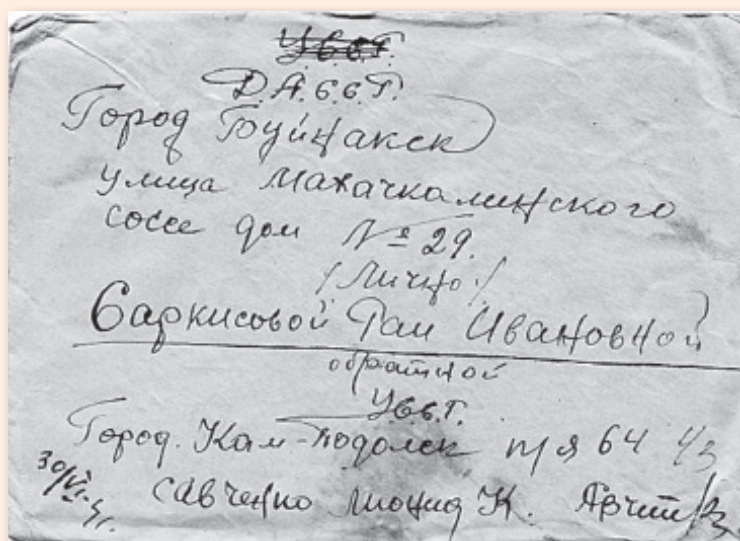 Д.А.С.С.Р.
Город Буйнакск
улица Махачкалинского
сосее дом № 29.
/Лично/
Саркисовой Раи Ивановной
обратной
УССР.
Город. Кам-Подолск п/я 64
30/VI-41г.
Савченко К.